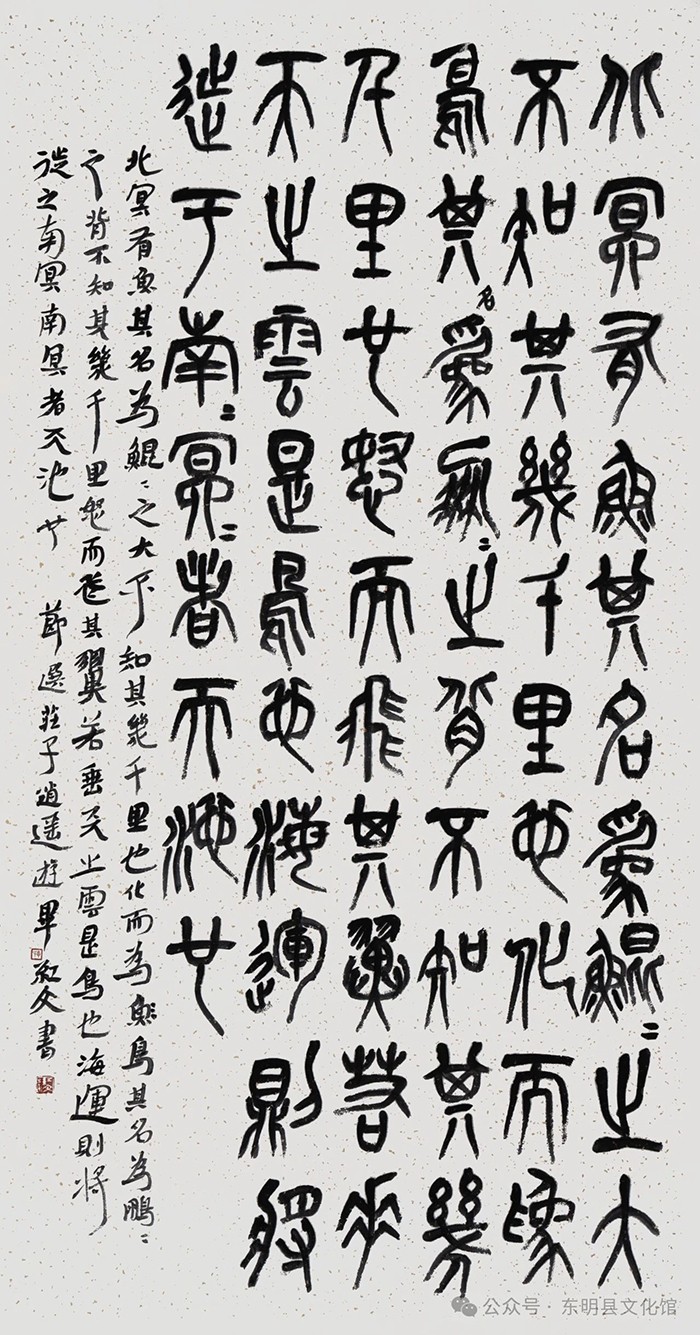 北冥有魚其名為鯤〻之大
不知其幾千里也化而為
鳥其名為鵬〻之背不知其幾
千里也怒而飛其翼若垂
天之雲是鳥也海運則將
徙于南〻冥〻者天池也
北冥有魚其名為鯤〻之大不知其幾千里也化而為鳥其名為鵬〻
之背不知其幾千里怒而飛其翼若垂天之雲是鳥也海運則將
徙之南冥南冥者天池也 節選莊子逍遥遊畢書
公众号·东明县文化馆